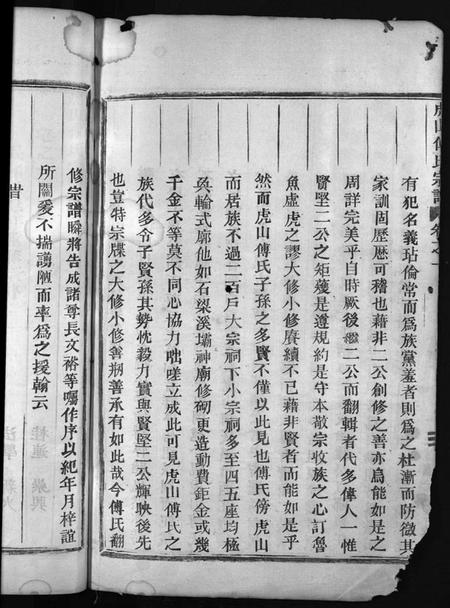 虎山傅氏宗譜 卷之一
有犯名義玷倫常而為族黨羞者則為之杜漸而防微其
家訓固歷歷可稽也藉非二公創修之善亦烏能如是之
周詳完美乎自時厥後繼二公而翻輯者代多偉人一惟
賢堅二公之矩蒦是遵規約是守本敬宗收族之心訂魯
魚虛虎之謬大修小修賡續不已藉非賢者而能如是乎
然而虎山傅氏子孫之多賢不僅以此見也傅氏傍虎山
而居族不過二百戶大宗祠下小宗祠多至四五座均極
奐輪式廓他如石梁溪壩神廟修砌更造動費鉅金或幾
千金不等莫不同心協力咄嗟立成此可見虎山傅氏之
族代多令子賢孫其勢忱毅力實與賢堅二公輝映後先
也豈特宗牒之大修小修善剏善承有如此哉今傅氏翻
修宗譜瞬將告成諸尊長文裕等囑作序以紀年月梓誼
所關爰不揣譾陋而率為之援翰云
昔